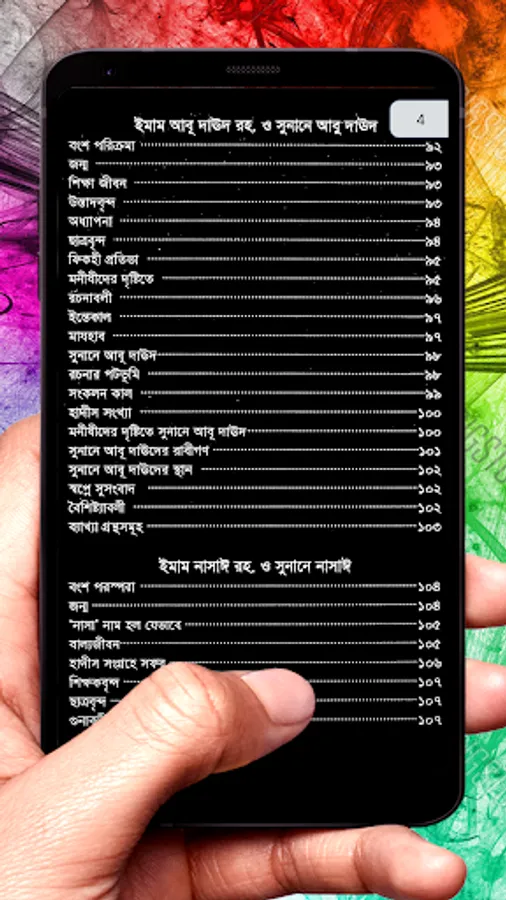 4
ইমাম আবূ দাঊদ রহ. ও সুনানে আবু দাঊদ
বংশ পরিক্রমা ৯২
জন্ম ৯৩
শিক্ষা জীবন ৯৩
উস্তাদবৃন্দ ৯৩
অধ্যাপনা ৯৪
ছাত্রবৃন্দ ৯৪
ফিকহী প্রতিভা ৯৫
মনীষীদের দৃষ্টিতে ৯৫
রচনাবলী ৯৬
ইন্তেকাল ৯৭
মাযহাব ৯৭
সুনানে আবূ দাঊদ ৯৮
রচনার পটভূমি ৯৮
সংকলন কাল ৯৯
হাদীস সংখ্যা ১০০
মনীষীদের দৃষ্টিতে সুনানে আবূ দাঊদ ১০০
সুনানে আবূ দাঊদের রাবীগণ ১০১
সুনানে আবূ দাঊদের স্থান ১০২
স্বপ্নে সুসংবাদ ১০২
বৈশিষ্ট্যাবলী ১০২
ব্যাখ্যা গ্রন্থসমূহ ১০৩
ইমাম নাসাঈ রহ. ও সুনানে নাসাঈ
বংশ পরস্পরা ১০৪
জন্ম ১০৪
‘নাসা’ নাম হল যেভাবে ১০৫
বাল্যজীবন ১০৫
হাদীস সংগ্রহে সফর ১০৬
শিক্ষকবৃন্দ ১০৭
ছাত্রবৃন্দ ১০৭
১০৭